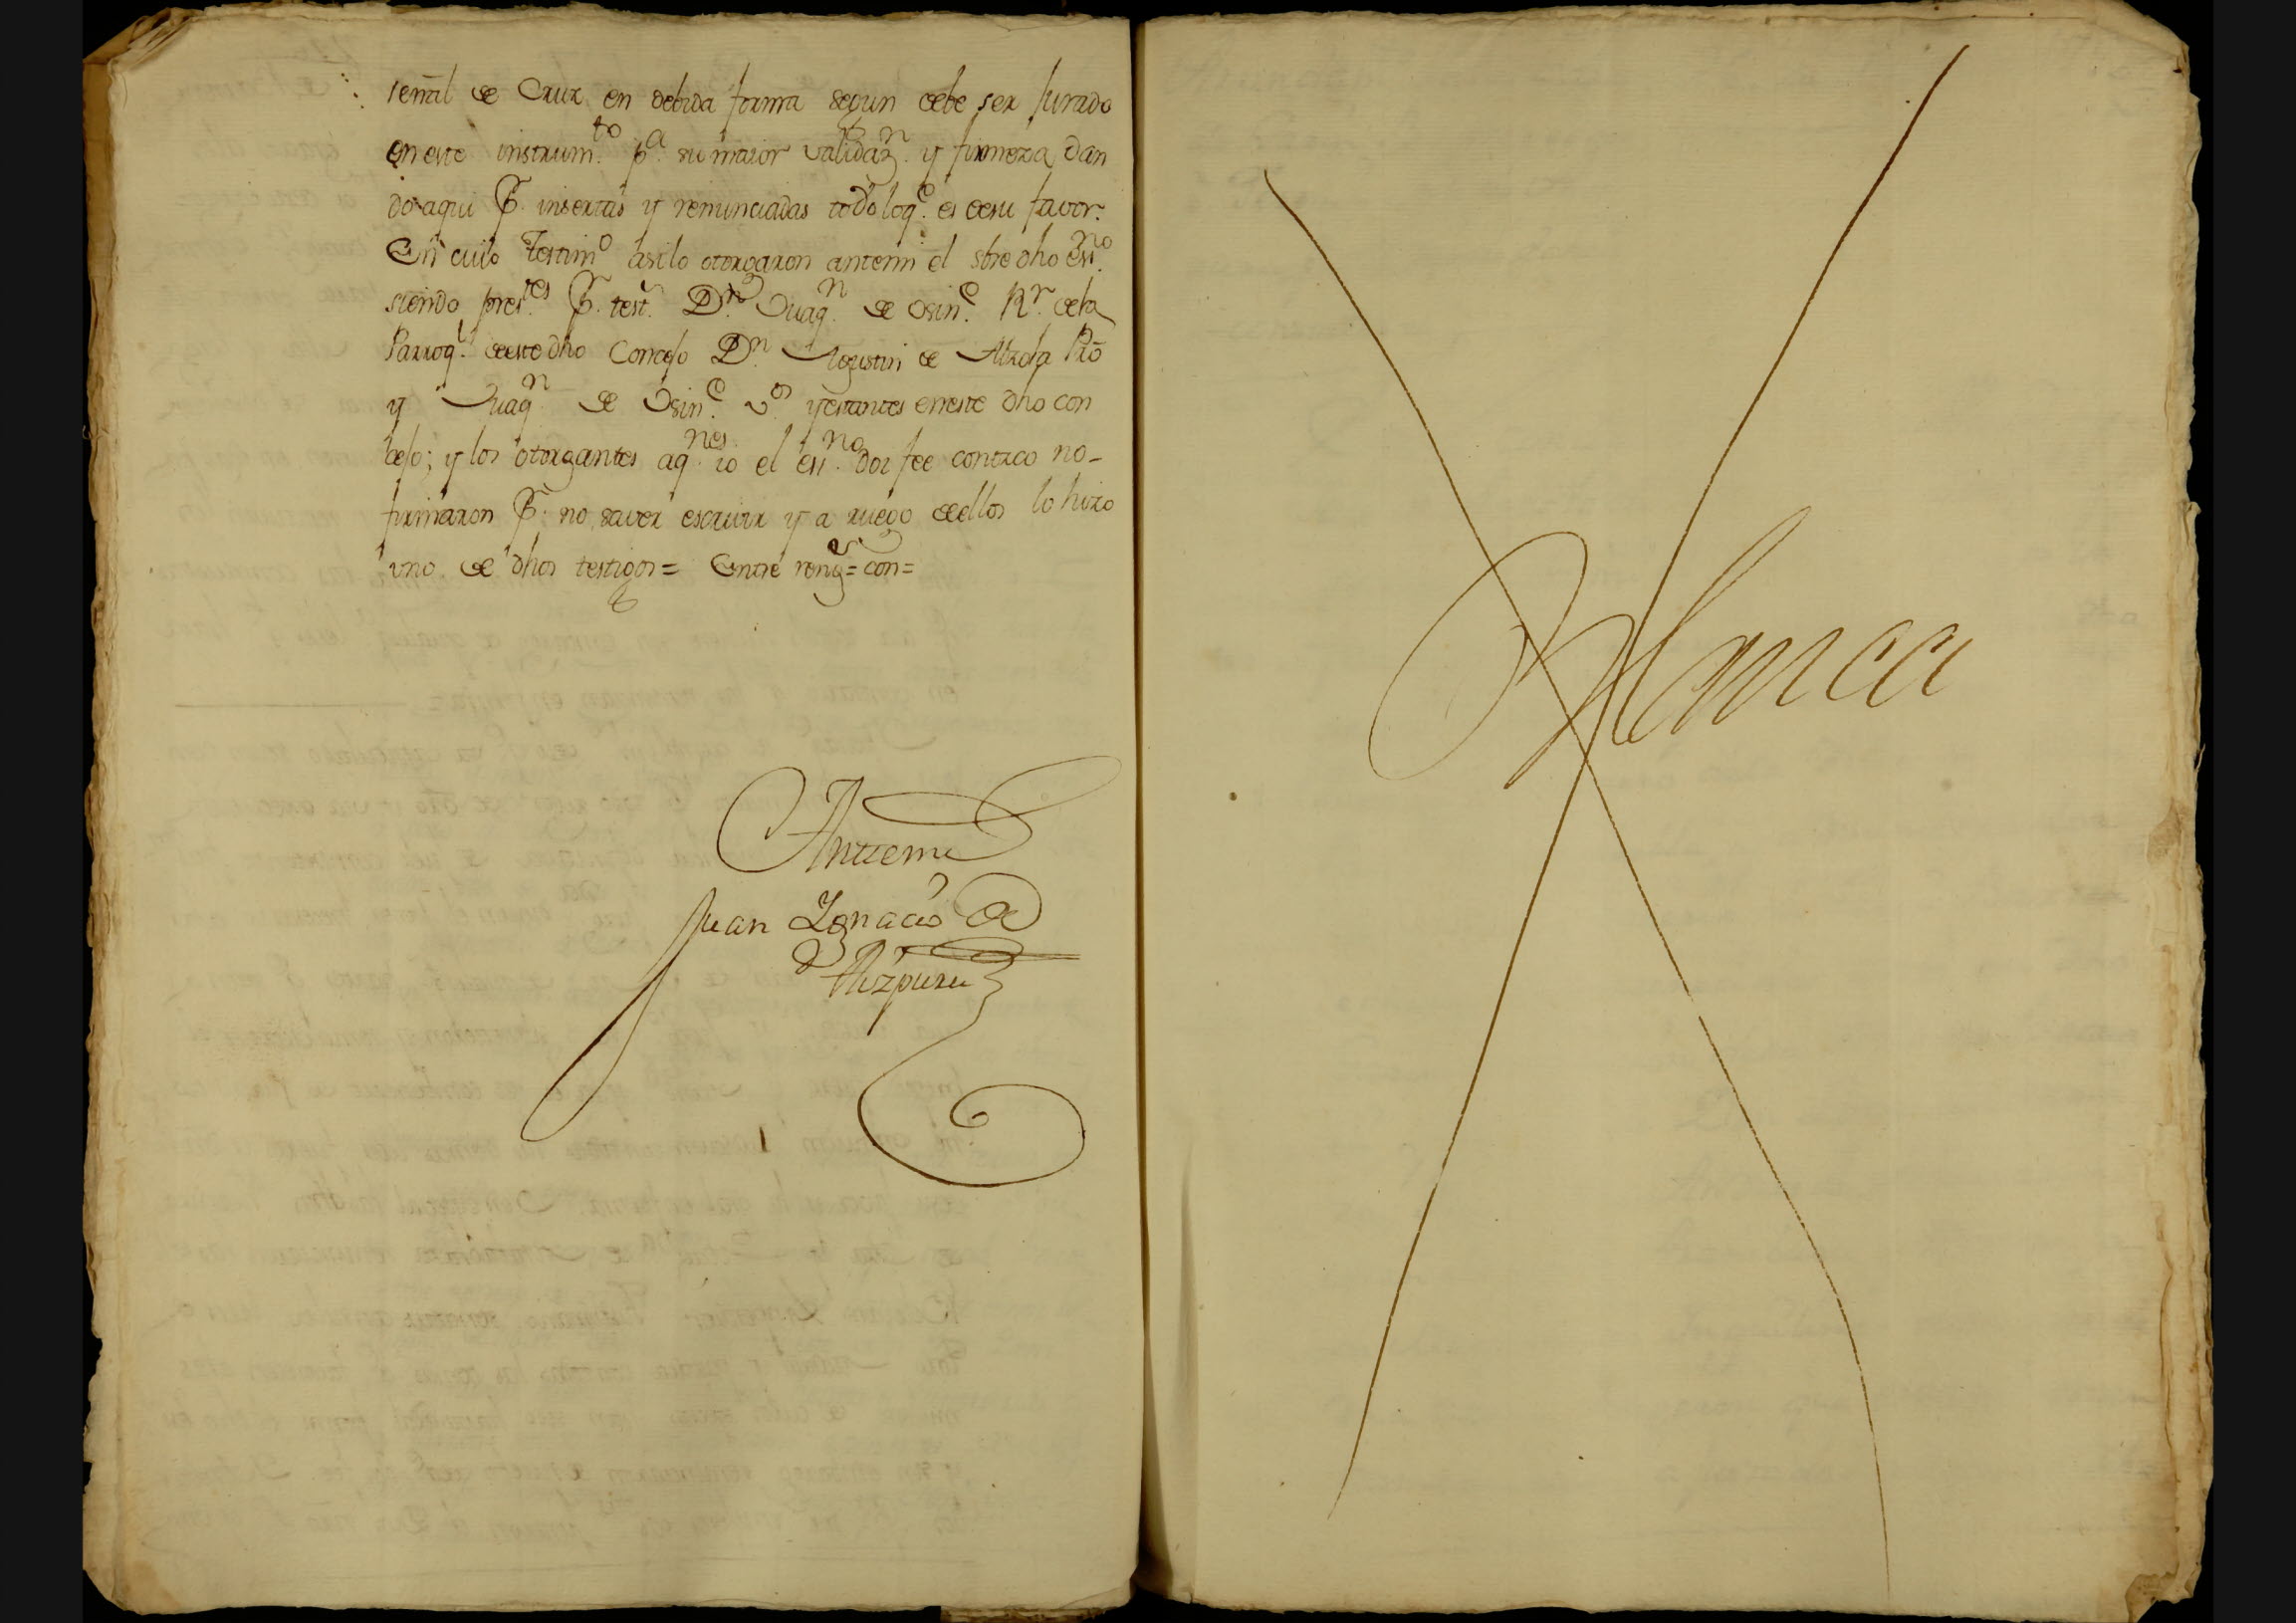 señal de Crux en debida forma segun debe ser Jurado
en este instrum.to p.a su maior validaz.n y firmeza dan
do aqui P. insertas y renunciadas todo loq.e es desu favor.
En cuio Testim.o asilo otorgaron antemi el sbre dho ess.no
siendo pres.tes P. test.s D.n Juaq.n de Osin.e R.r dela
Parroq.l deeste dho Concejo D.n Agustin de Alzola Pro
y Juaq.n de Osin.e v.s yestantes eneste dho con
cejo; y los otorgantes aq.nes io el ess.no doi fee conozco no-
firmaron P. no saver escrivir y a ruego deellos lo hizo
uno de dhos testigos = Entre reng.s = con =
Antemi
Juan Ignacio de
Aizpuru
Blanca